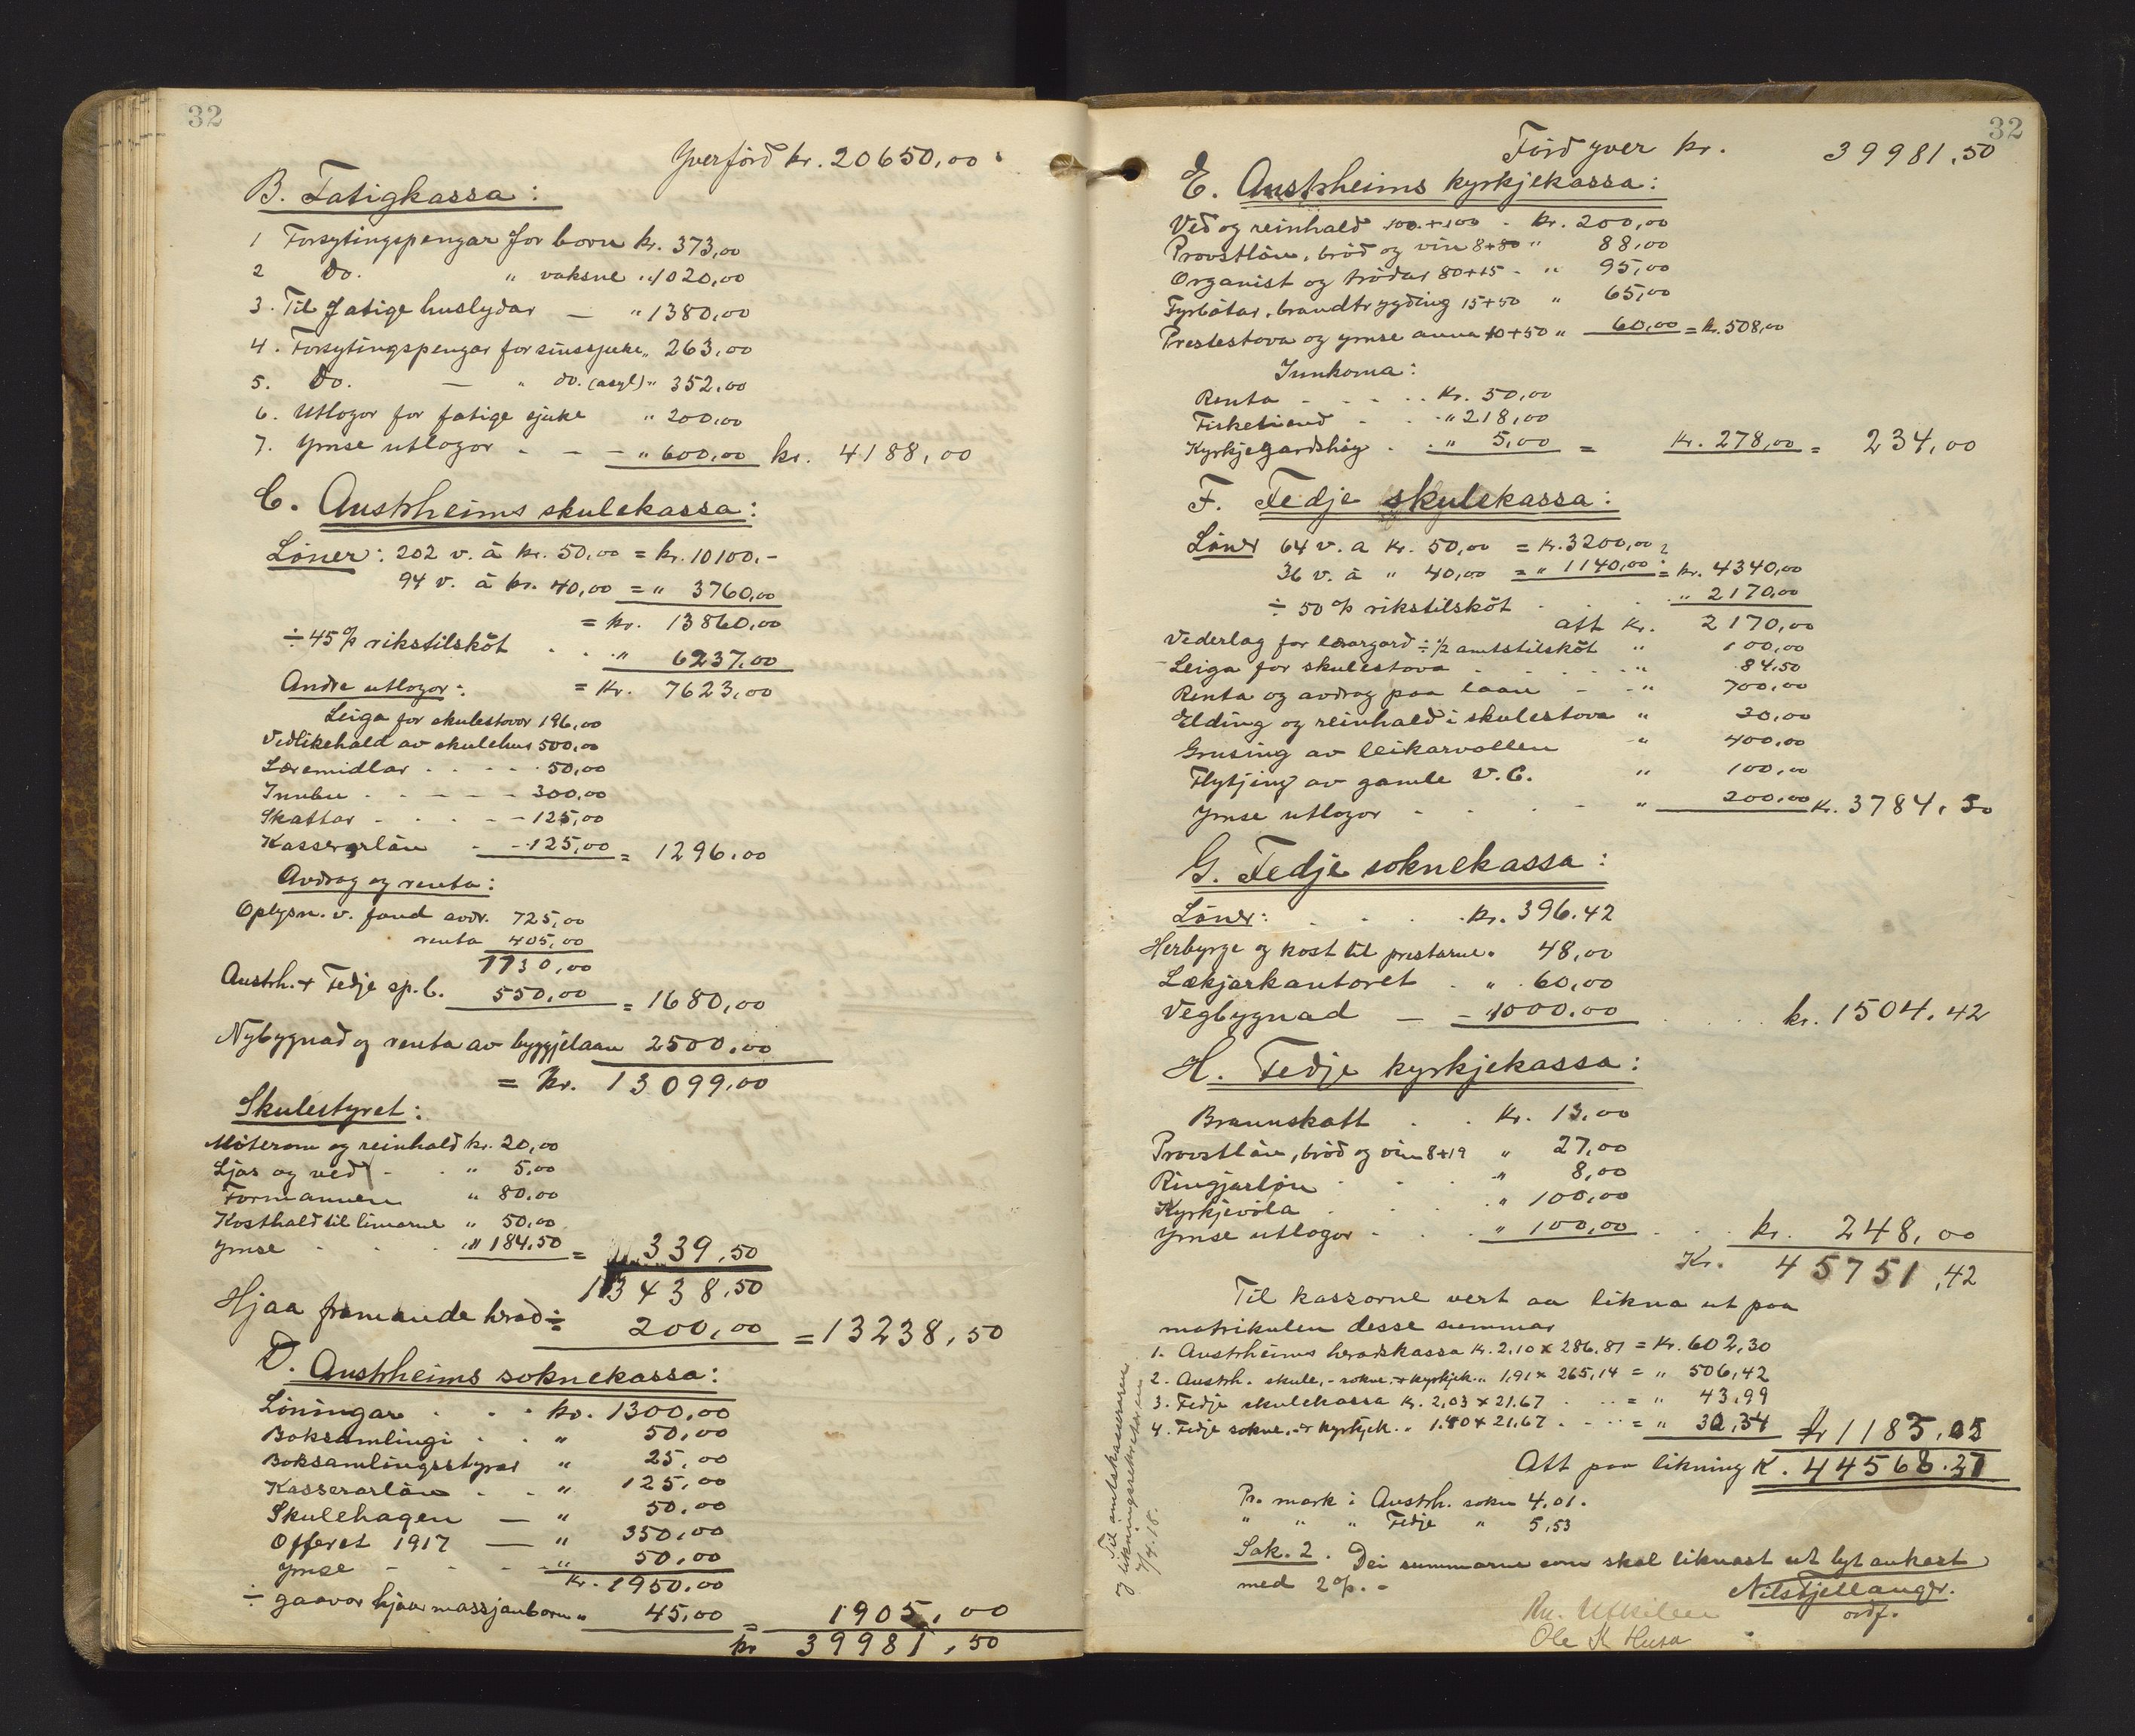 32
Yverförd kr. 20650,00
B. Fatigkassa:
1 Forsytingspengar for born kr. 373,00
2 Do. " vaksne " 1020,00
3. Til fatige huslydar — " 1380,00
4. Forsytingspengar for sinssjuke " 263,00
5. Do. — " do. (asyl) " 352,00
6. Utlogor for fatige sjuke " 200,00
7. Ymse utlogor - - - " 600,00 kr. 4188,00
C. Austrheims skulekassa:
Löner: 202 v. à kr. 50,00 = kr. 10100.-
94 v. à kr. 40,00 = " 3760,00
= kr. 13860,00
÷ 45% rikstilsköt . . . " 6237,00
= Kr. 7623,00
Andre utlogor:
Leiga for skulestovor 196,00
Vedlikehald av skulehus 500,00
Læremidlar . . . . 50,00
Innbu . - - - - 300,00
Skattar - . . - - 125,00
Kasserarlön - - 125,00 = 1296,00
Avdrag og renta:
Oplysn. v. fond avdr. 725,00
renta 405,00
1130,00
Austrh. + Fedje sp.b. 550,00 = 1680,00
Nybygnad og renta av byggjelaan 2500,00
= Kr. 13099,00
Skulestyret:
Möterom og reinhald kr. 20,00
Ljos og ved - . " 5,00
Formannen " 80,00
Kosthald til limarne " 50,00
Ymse . . . " 184,50 = 339,50
13438,50
Hjaa framande herad ÷ 200,00 = 13238,50
D. Austrheims soknekassa:
Löningar . . . kr. 1300,00
Boksamlingi . . " 50,00
Boksamlingsstyrar " 25,00
Kasserarlön . . " 125,00
Skulehagen — " 50,00
Offeret 1917 — " 350,00
Ymse - - - " 50,00
Kr. 1950,00
÷ gaavor hjaa massjonborn " 45,00 = 1905,00
kr 39981,50
32
Förd yver kr. 39981,50
E. Austrheims kyrkjekassa:
Ved og reinhald 100+100 - kr. 200,00
Provstlön, bröd og vin 8+80 " 88,00
Organist og trödar 80+15 - " 95,00
Fyrbötar, brandtrygding 15+50 " 65,00
Prestestova og ymse anna 10+50 " 60,00 = kr. 508,00
Innkoma:
Renta - - - . . Kr. 50,00
Fisketiend - . . " 218,00
Kyrkjegardshög . . " 5,00 = Kr. 278,00 = 234,00
F. Fedje skulekassa:
Löner 64 v. a Kr. 50,00 = Kr. 3200,00
36 v. à " 40,00 = " 1140,00 = kr. 4340,00
÷ 50% rikstilsköt . . . " 2170,00
att Kr. 2170,00
Vederlag for lærargard ÷ 1/2 amtstilsköt " 100,00
Leiga for skulestova . . . " 84,50
Renta og avdrag paa laan - - " 700,00
Elding og reinhald i skulestova " 30,00
Grusing av leikarvollen " 400,00
Flytjing av gamle V.C. " 100,00
Ymse utlogor - - - " 200,00 Kr. 3784,50
G. Fedje soknekassa:
Löner: . . . kr. 396.42
Herbyrge og kost til prestarne " 48,00
Lækjarkontoret . " 60,00
Vegbygnad — - 1000,00 . . . kr. 1504,42
H. Fedje kyrkjekassa:
Brannskatt . . Kr. 13,00
Provstlön, bröd og vin 8+19 " 27,00
Ringjarlön . . . " 8,00
Kyrkjevöla . . . " 100,00
Ymse utlogor . . . " 100,00 . . . kr. 248,00
Kr. 45751,42
Til kassorne vert aa likna ut paa
matrikulen desse summar
1. Austrheims heradskassa Kr. 2,10 x 286,81 = Kr. 602,30
2. Austrh. skule,- sokne,- + kyrkjek. " 1,91 x 265,14 = " 506,42
3. Fedje skulekassa Kr. 2,03 x 21,67 . . . = " 43,99
4. Fedje sokne,- + kyrkjek. " 1.40 x 21,67 . - . . = " 30,34 Kr 1183,05
Att paa likning K. 44568.37
Pr. mark i Austrh. sokn 4.01.
" " " Fedje " 5,53
Sak. 2. Dei summarne som skal liknast ut lyt aukast
med 2%. -
Nils Fjellanger.
ordf.
Ole K Husa
Til amtskasseraren
og likningssekretæren
4/4.18.